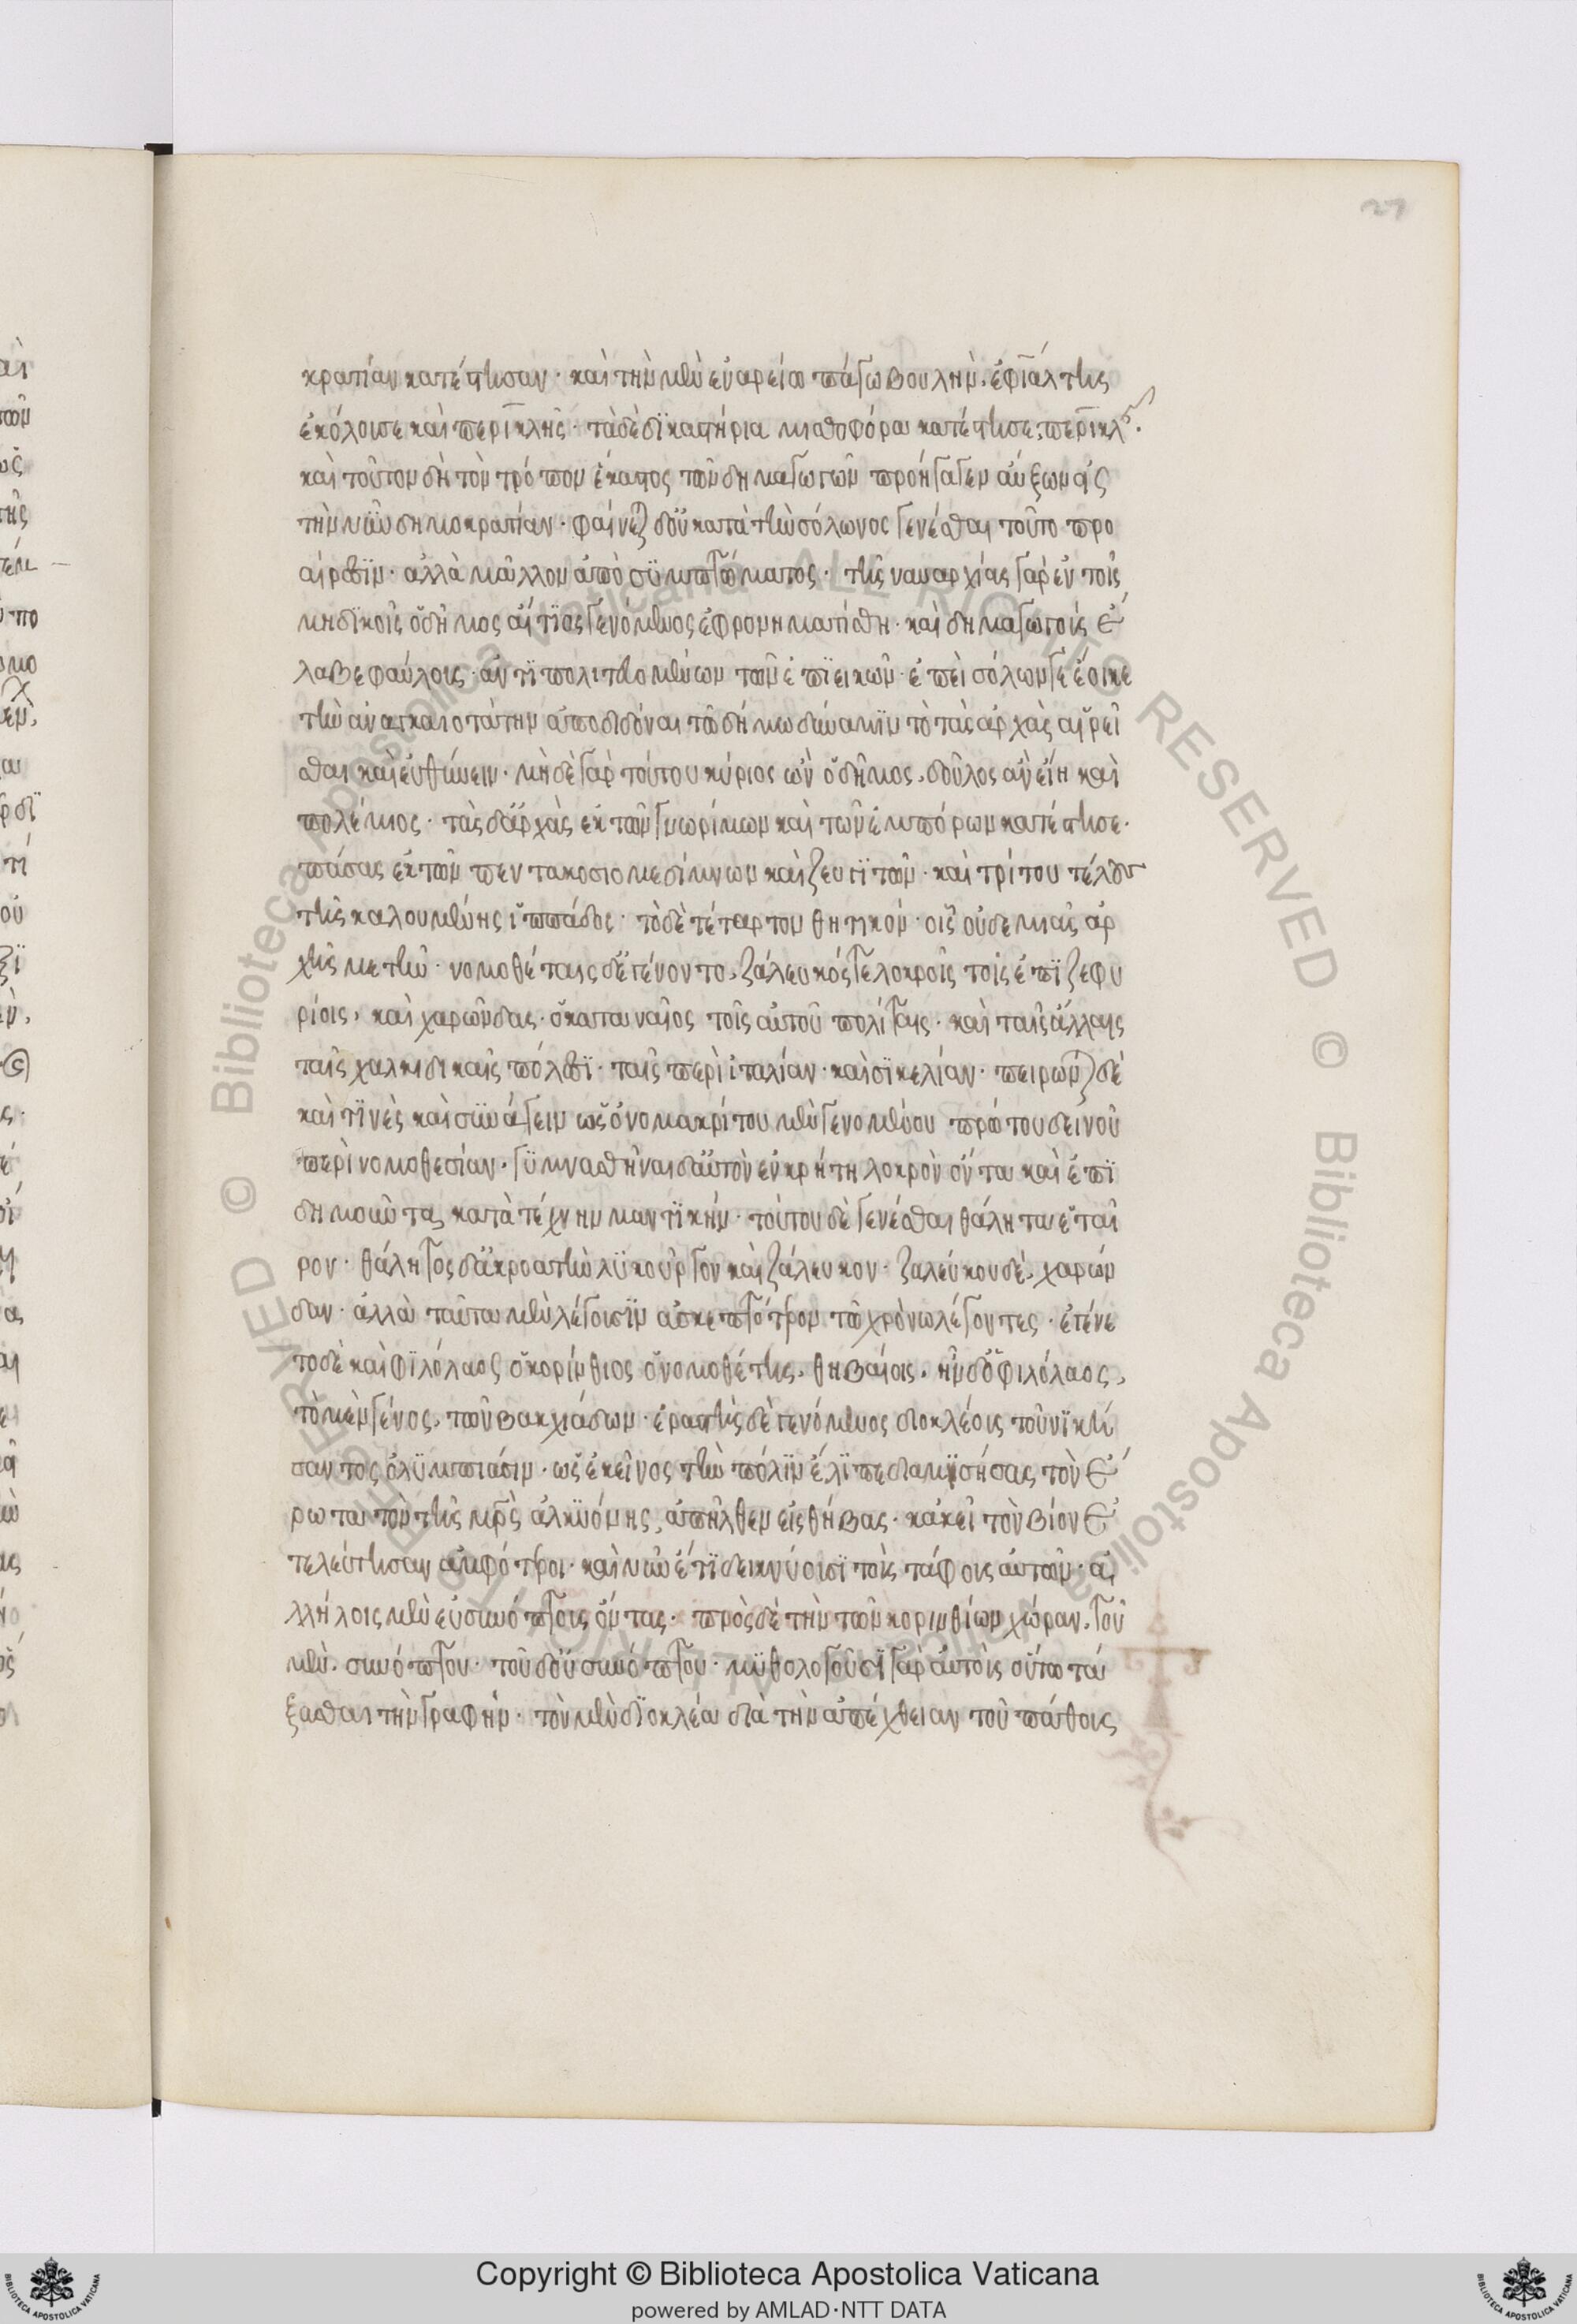 27
κρατίαν κατέστησαν· καὶ τὴν μὲν ἐν ἀρείω πάγω βουλὴν, ἐφιάλτης
ἐκόλουσε καὶ περικλῆς· τὰ δὲ δικαστήρια μισθοφόρα κατέστησε, περικλῆς.
καὶ τοῦτον δὴ τὸν τρόπον ἕκαστος τῶν δημαγωγῶν προήγαγεν αὔξων εἰς
τὴν νῦν δημοκρατίαν· φαίνεται δ' οὐ κατὰ τὴν σόλωνος γενέσθαι τοῦτο προ
αίρεσιν· ἀλλὰ μᾶλλον ἀπὸ συμπτώματος· τῆς ναυαρχίας γὰρ ἐν τοῖς
μηδικοῖς ὁ δῆμος αἴτιος γενόμενος ἐφρονηματίσθη· καὶ δημαγωγοὺς ἔ
λαβε φαύλους· ἀντιπολιτευομένων τῶν ἐπιεικῶν· ἐπεὶ σόλων γε ἔοικε
τὴν ἀναγκαιοτάτην ἀποδιδόναι τῶ δήμω δύναμιν τὸ τὰς ἀρχὰς αἱρεῖ
σθαι καὶ εὐθύνειν· μὴ δὲ γὰρ τούτου κύριος ὢν ὁ δῆμος, δοῦλος ἂν εἴη καὶ
πολέμιος· τὰς δ' ἀρχὰς ἐκ τῶν γνωρίμων καὶ τῶν ἐμπόρων κατέστησε·
πάσας ἐκ τῶν πεντακοσιομεδίμνων καὶ ζευγιτῶν· καὶ τρίτου τέλους
τῆς καλουμένης ἱππάδος· τὸ δὲ τέταρτον θητικόν· οἷς οὐδεμιᾶς ἀρ
χῆς μετῆν· νομοθέται δ' ἐγένοντο, ζάλευκός τε λοκροῖς τοῖς ἐπιζεφυ
ρίοις, καὶ χαρώνδας· ὁ καταναῖος τοῖς αὑτοῦ πολίταις· καὶ ταῖς ἄλλαις
ταῖς χαλκιδικαῖς πόλεσι· ταῖς περὶ ἰταλίαν· καὶ σικελίαν· πειρῶνται δὲ
καὶ τινὲς καὶ συνάγειν ὡς ὀνομακρίτου μὲν γενομένου πρώτου δεινοῦ
περὶ νομοθεσίαν· γυμνασθῆναι δ' αὐτὸν ἐν κρήτη λοκρὸν ὄντα καὶ ἐπι
δημοῦντα κατὰ τέχνην μαντικήν· τούτου δὲ γενέσθαι θάλητα ἑταῖ
ρον· θάλητος δ' ἀκροατὴν λυκοῦργον καὶ ζάλευκον· ζαλεύκου δὲ, χαρών
δαν· ἀλλὰ ταῦτα μὲν λέγουσιν ἀσκεπτότερον τῶ χρόνω λέγοντες· ἐγένε
το δὲ καὶ φιλόλαος ὁ κορίνθιος ὁ νομοθέτης, θηβαίοις, ἦν δ' ὁ φιλόλαος,
τὸ μὲν γένος, τῶν βακχιάδων· ἐραστὴς δὲ γενόμενος διοκλέους τοῦ νικήσ
σαντος ὀλυμπιάσιν· ὡς ἐκεῖνος τὴν πόλιν ἔλιπε διαμισήσας τὸν ἔ
ρωτα τὸν τῆς μητρὸς ἀλκυόνης, ἀπῆλθεν εἰς θήβας· κἀκεῖ τὸν βίον ἐ
τελεύτησαν ἀμφότεροι· καὶ νῦν ἔτι δεικνύουσι τοὺς τάφους αὐτῶν· ἀ
λλήλοις μὲν εὐσυνόπτους ὄντας· πρὸς δὲ τὴν τῶν κορινθίων χώραν, τοῦ
μὲν, συνόπτου· τοῦ δ' οὐ συνόπτου· μυθολογοῦσι γὰρ αὐτοὺς οὕτω τά
ξασθαι τὴν γραφήν· τὸν μὲν διοκλέα διὰ τὴν ἀπέχθειαν τοῦ πάθους
Copyright © Biblioteca Apostolica Vaticana
powered by AMLAD·NTT DATA